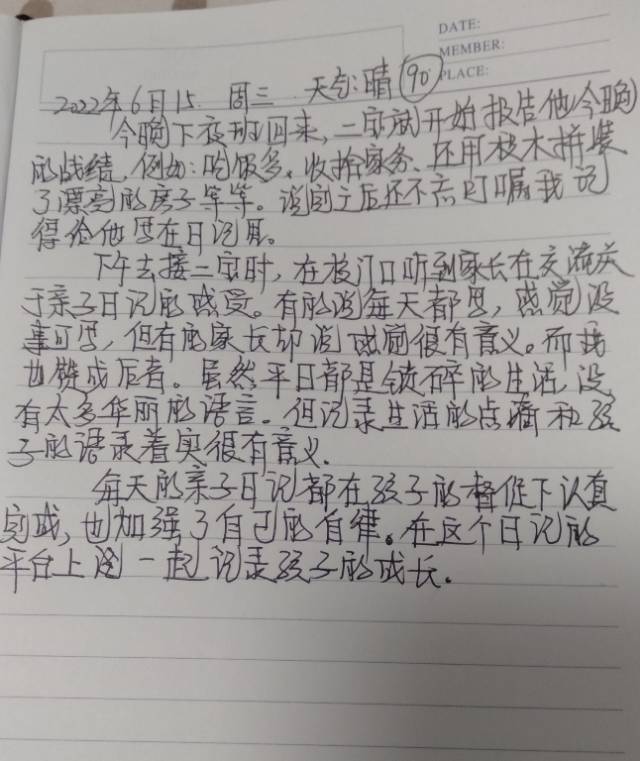 DATE:
MEMBER:
PLACE:
2022年6月15. 周三 天气:晴 90
今晚下夜班回来,二宝就开始报告他今晚
的战绩,例如:吃饭多。收拾家务、还用积木拼装
了漂亮的房子等等。说到之后还不忘叮嘱我记
得给他写在日记里。
下午去接二宝时,在校门口听到家长在交流关
于亲子日记的感受。有的说每天都写,感觉没
事可写,但有的家长却说感觉很有意义。而我
也赞成后者。虽然平日都是锁碎的生活,没
有太多华丽的语言。但记录生活的点滴和孩
子的语录着实很有意义.
每天的亲子日记都在孩子的督促下认真
完成,也加强了自己的自律。在这个日记的
平台上 一起记录孩子的成长.